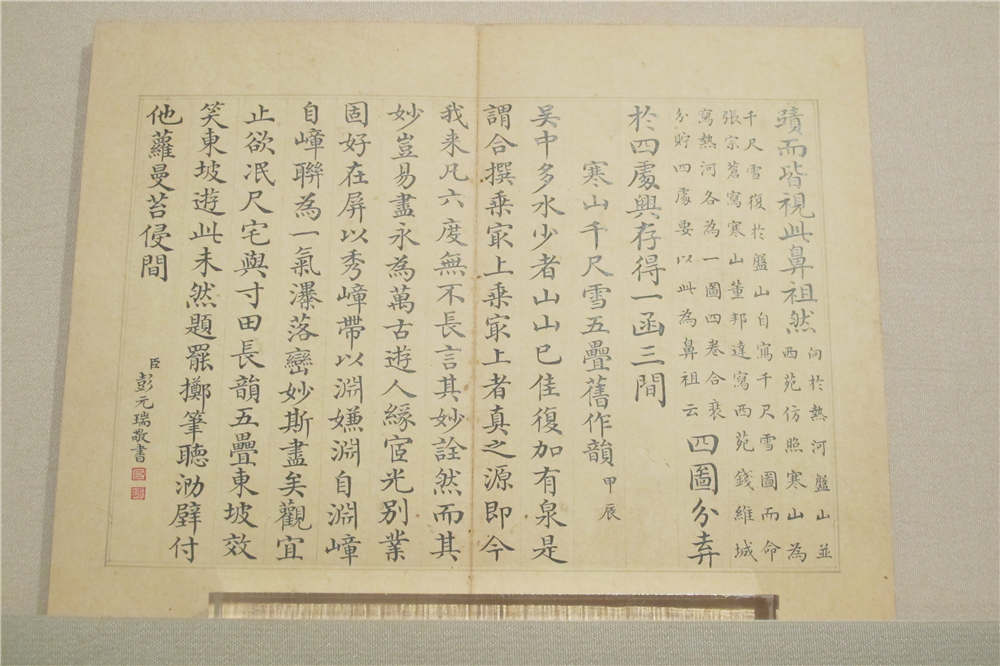 蹟而皆視此鼻祖然
向於熱河盤山並
西苑仿照寒山為
千尺雪復於盤山自寫千尺雪圖而命
張宗蒼寫寒山董邦達寫西苑錢維城
寫熱河各為一圖四卷合袠
分貯四處要以此為鼻祖云
四圖分弆
於四處與存得一函三間
寒山千尺雪五疊舊作韻 甲辰
吳中多水少者山山已佳復加有泉是
謂合撰乘㝡上乘㝡上者真之源即今
我来凡六度無不長言其妙詮然而其
妙豈易盡永為萬古遊人緣宧光别業
固好在屏以秀嶂帶以淵嫌淵自淵嶂
自嶂聯為一氣瀑落巒妙斯盡矣觀宜
止欲泯尺宅與寸田長韻五疊東坡效
笑東坡遊此未然題罷擲筆聽泐壁付
他蘿曼苔侵間
臣彭元瑞敬書